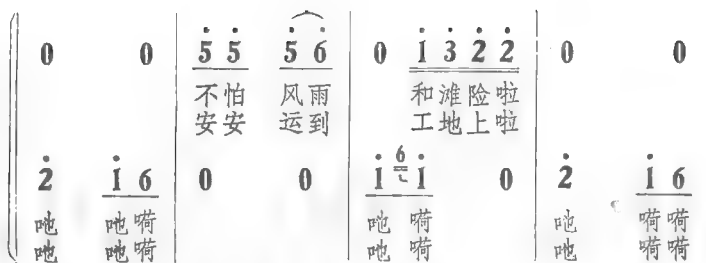 0 0 5 5 5 6 0 1 3 2 2 0 0
不怕 风雨 和滩险啦
安安 运到 工地上啦
2 1 6 0 0 1 6 1 0 2 1 6
吔 吔嗬 吔 嗬 吔 嗬嗬
吔 吔嗬 吔 嗬 吔 嗬嗬